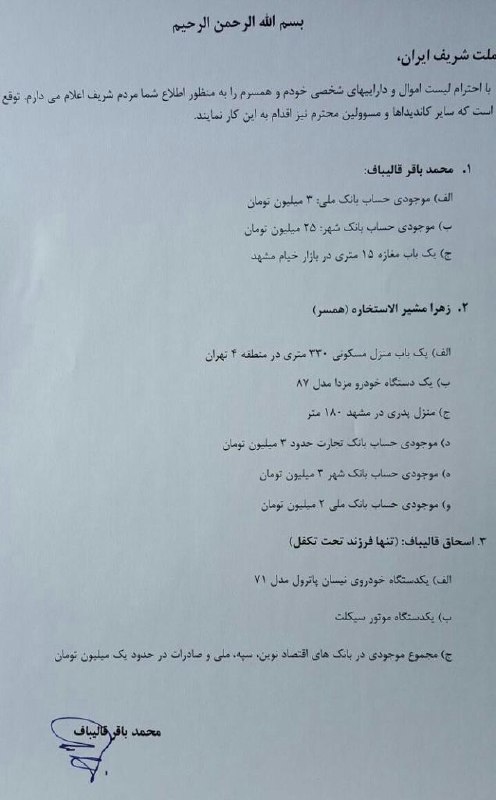 بسم الله الرحمن الرحیم
ملت شریف ایران،
با احترام لیست اموال و داراییهای شخصی خودم و همسرم را به منظور اطلاع شما مردم شریف اعلام می دارم. توقع
است که سایر کاندیداها و مسوولین محترم نیز اقدام به این کار نمایند.
۱. محمد باقر قالیباف:
الف) موجودی حساب بانک ملی: ۳ میلیون تومان
ب) موجودی حساب بانک شهر: ۲۵ میلیون تومان
ج) یک باب مغازه ۱۵ متری در بازار خیام مشهد
۲. زهرا مشیر الاستخاره (همسر)
الف) یک باب منزل مسکونی ۳۳۰ متری در منطقه ۴ تهران
ب) یک دستگاه خودرو مزدا مدل ۸۷
ج) منزل پدری در مشهد ۱۸۰ متر
د) موجودی حساب بانک تجارت حدود ۳ میلیون تومان
ه) موجودی حساب بانک شهر ۳ میلیون تومان
و) موجودی حساب بانک ملی ۲ میلیون تومان
۳. اسحاق قالیباف: (تنها فرزند تحت تکفل)
الف) یکدستگاه خودروی نیسان پاترول مدل ۷۱
ب) یکدستگاه موتور سیکلت
ج) مجموع موجودی در بانک های اقتصاد نوین، سپه، ملی و صادرات در حدود یک میلیون تومان
محمد باقر قالیباف